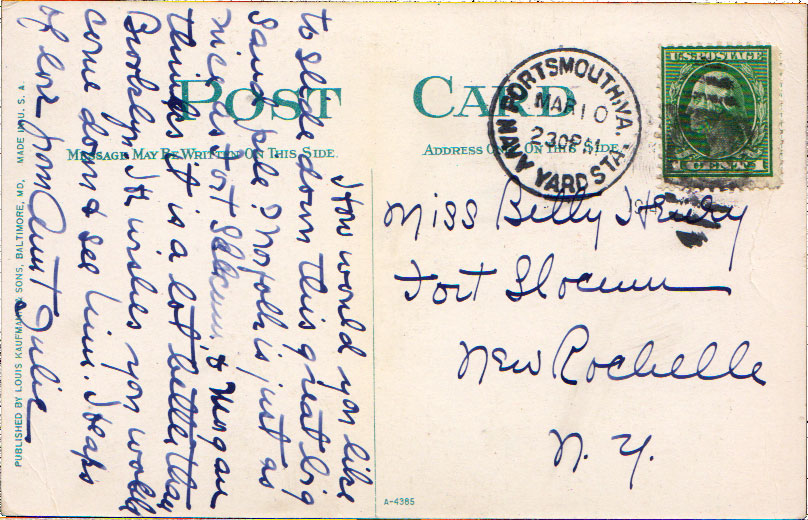 POST CARD
MESSAGE MAY BE WRITTEN ON THIS SIDE.
ADDRESS ONLY ON THIS SIDE
How would you like
to slide down this great big
sand pile? Norfolk is just as
nice as Fort Slocum, & Morgan
thinks it is a lot better than
Brooklyn. He wishes you would
come down & see him. Heaps
of love from Aunt Julie
PUBLISHED BY LOUIS KAUFMANN & SONS, BALTIMORE, MD. MADE IN U. S. A.
PORTSMOUTH, VA.
MAR 10
230PM
NAVY YARD STA.
U.S. POSTAGE
1 CENT 1
Miss Betty Henry
Fort Slocum
New Rochelle
N. Y.
A-4385